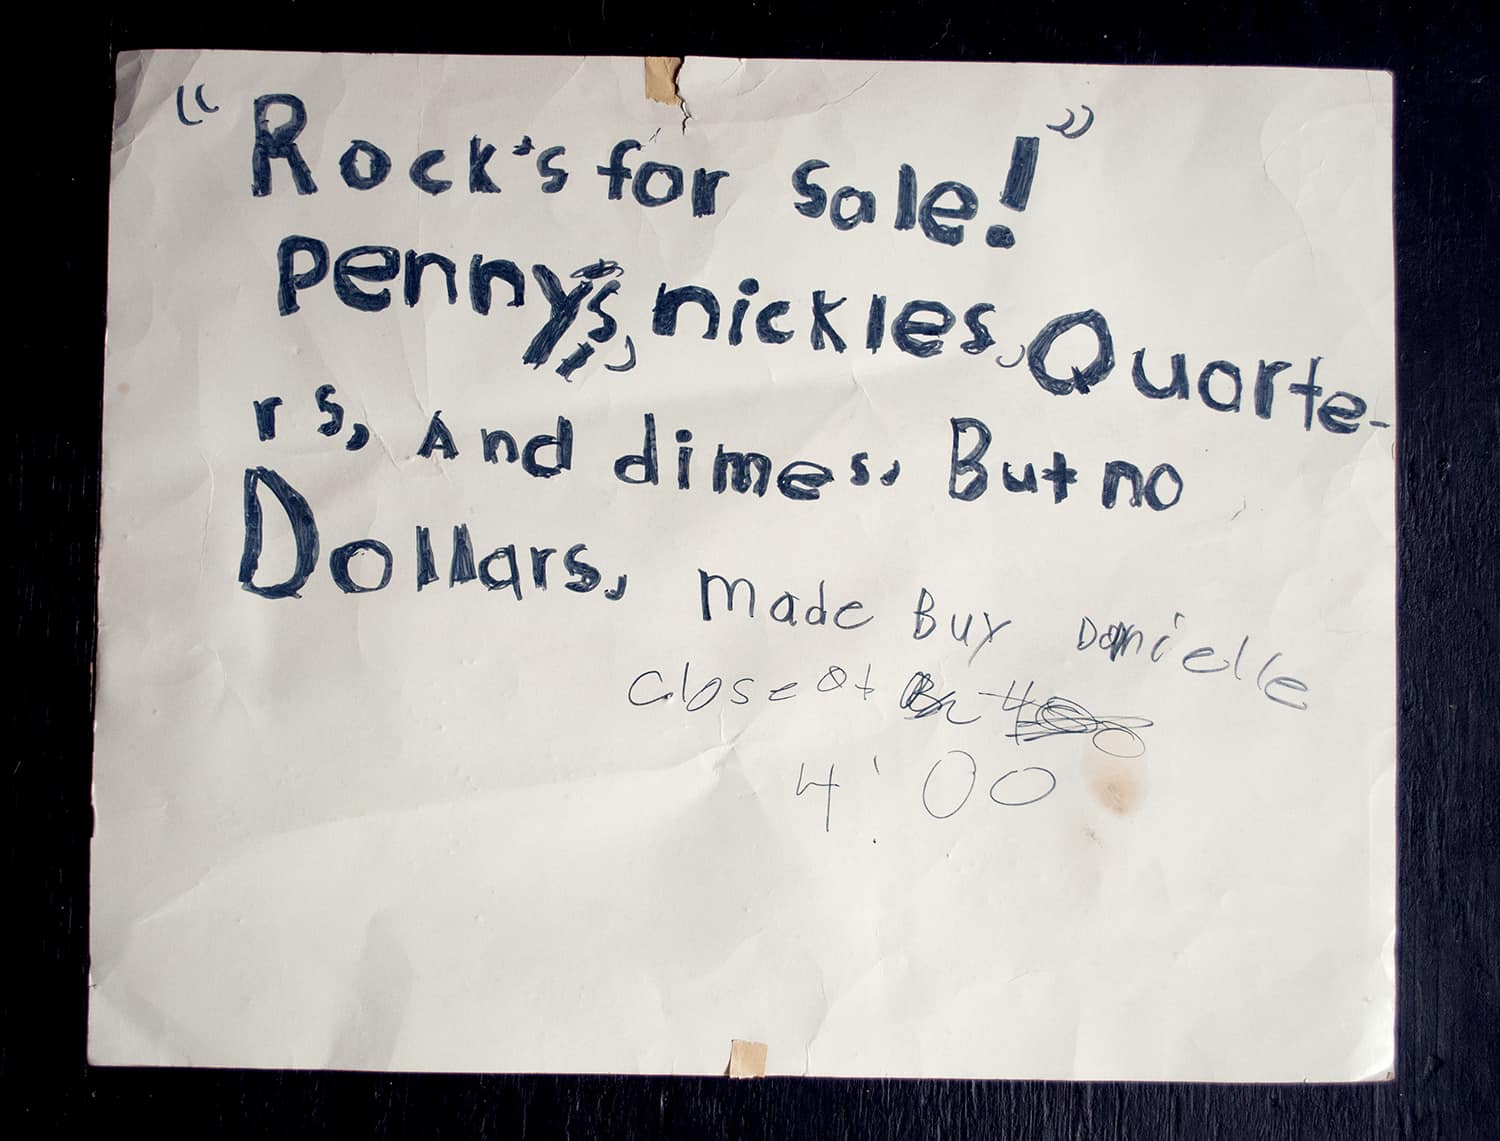 “Rock's for Sale!”
Pennys, nickles, Quarte-
rs, And dimes, But no
Dollars, made Buy Danielle
close at
4:00